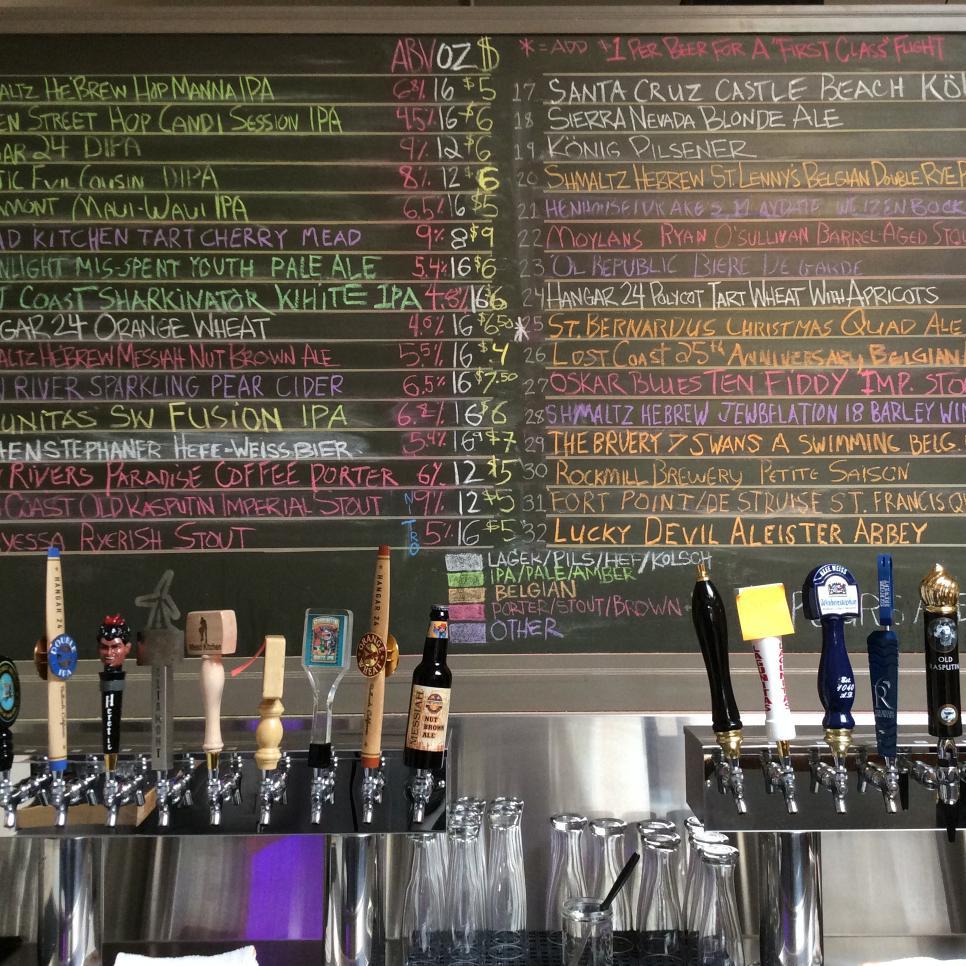 ABV OZ $
ALTZ HEBREW HOP MANNA IPA 6% 16 $5
EN STREET HOP CANDI SESSION IPA 4.5% 16 $6
AR 24 DIPA 9% 12 $6
TIC EVIL COUSIN DIPA 8% 12 $6
MONT MAUI-WAUI IPA 6.5% 16 $5
AD KITCHEN TART CHERRY MEAD 9% 8 $9
NLIGHT MIS-SPENT YOUTH PALE ALE 5.4% 16 $6
T COAST SHARKINATOR WHITE IPA 4.8% 16 $6
GAR 24 ORANGE WHEAT 4.6% 16 $6.50
ALTZ HEBREW MESSIAH NUT BROWN ALE 5.5% 16 $4
RIVER SPARKLING PEAR CIDER 6.5% 16 $7.50
UNITAS SW FUSION IPA 16 $6
HENSTEPHANER HEFE-WEISSBIER 5.4% 16 $7
RIVERS PARADISE COFFEE PORTER 6% 12 $5
COAST OLD RASPUTIN IMPERIAL STOUT 9% 12 $5
YESSA RYERISH STOUT NITRO 5% 16 $5
* = ADD $1 PER BEER FOR A "FIRST CLASS" FLIGHT
17 SANTA CRUZ CASTLE BEACH KÖL
18 SIERRA NEVADA BLONDE ALE
19 KÖNIG PILSENER
20 SHMALTZ HEBREW ST LENNY'S BELGIAN DOUBLE RYE P
21 HENHOUSE/DRAKES WEIZENBOCK
22 MOYLANS RYAN O'SULLIVAN BARREL-AGED STOU
23 OL REPUBLIC BIERE DE GARDE
24 HANGAR 24 POLYCOT TART WHEAT WITH APRICOTS
*25 ST. BERNARDUS CHRISTMAS QUAD ALE
26 LOST COAST 25th ANNIVERSARY BELGIAN
27 OSKAR BLUES TEN FIDDY IMP. STO
28 SHMALTZ HEBREW JEWBELATION 18 BARLEY WIN
29 THE BRUERY 7 SWANS A SWIMMING BELG.
30 ROCKMILL BREWERY PETITE SAISON
31 FORT POINT/DE STRUISE ST. FRANCIS QU
32 LUCKY DEVIL ALEISTER ABBEY
LAGER/PILS/HEF/KOLSCH
IPA/PALE/AMBER
BELGIAN
PORTER/STOUT/BROWN
OTHER
HANGAR 24
DOUBLE IPA
Heretic
Mead Kitchen
WHITE IPA
HANGAR 24
ORANGE WHEAT
MESSIAH
NUT BROWN ALE
LAGUNITAS
HEFE WEISS
Weihenstephaner
Est. 1040 A.D.
OLD RASPUTIN